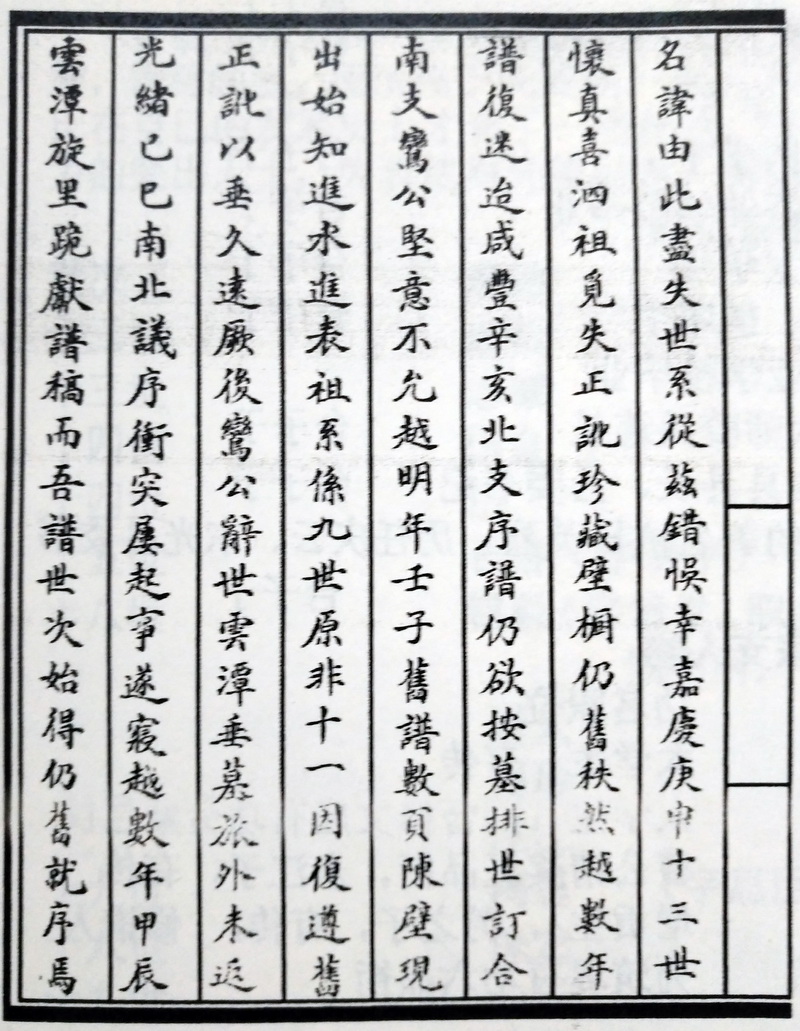 名諱由此盡失世系從茲錯悞幸嘉慶庚申十三世
懷真喜泗祖覓失正訛珍藏壁橱仍舊秩然越數年
譜復迷迨咸豐辛亥北支序譜仍欲按墓排世訂合
南支鸞公堅意不允越明年壬子舊譜數頁陳壁現
出始知進水進表祖系係九世原非十一因復遵舊
正訛以垂久遠厥後鸞公辭世雲潭垂墓旅外未返
光緒己巳南北議序衝突屢起事遂寢越數年甲辰
雲潭旋里跪獻譜稿而吾譜世次始得仍舊就序焉